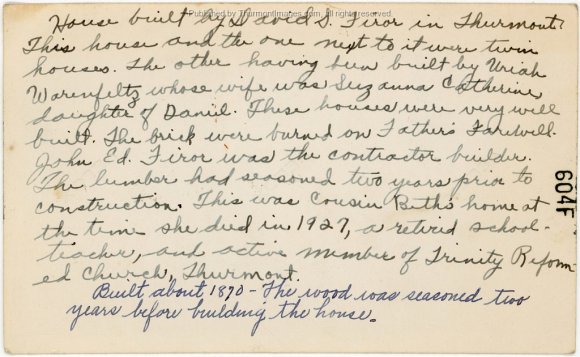 Property of ThurmontImages.com . All rights reserved
House built by David S. Firor in Thurmont.
This house and the one next to it were twin
houses. The other having been built by Uriah
Warenfeltz whose wife was Suzanna Catherine
daughter of Daniel. These houses were very well
built. The brick were burned on Father's Farewell.
John Ed. Firor was the contractor builder.
The lumber had seasoned two years prior to
construction. This was Cousin Beth's home at
the time she died in 1927, a retired school-
teacher, and active member of Trinity Reform-
ed Church, Thurmont.
Built about 1890 - The wood was seasoned two
years before building the house.
604F